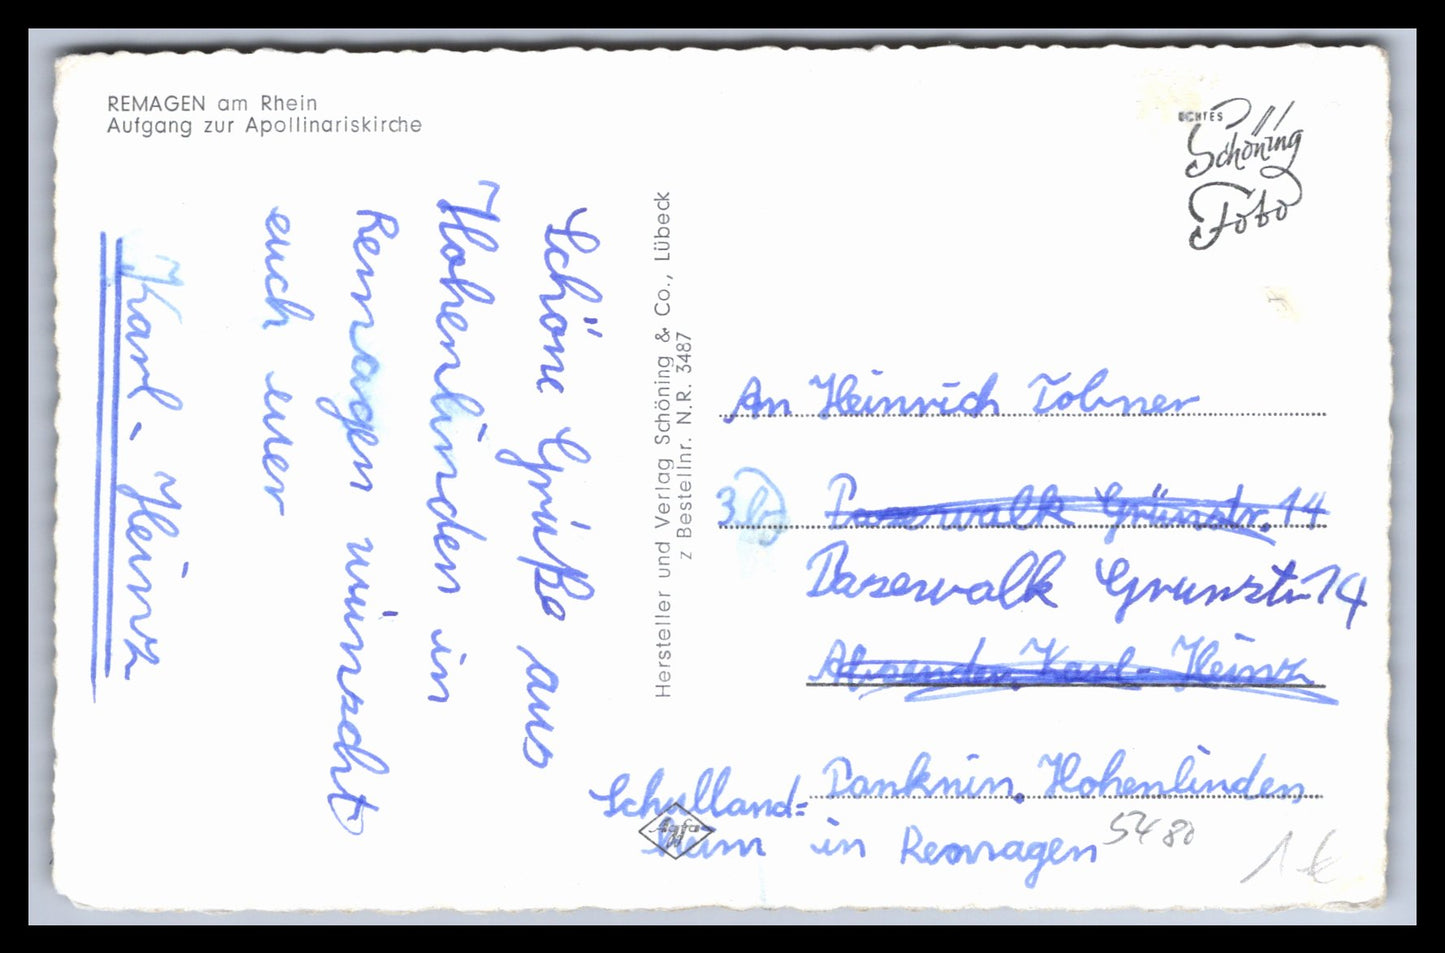 REMAGEN am Rhein
Aufgang zur Apollinariskirche
ECHTES
Schöning
Foto
Schöne Grüße aus
Hohenlinden in
Remagen wünscht
euch euer
Karl-Heinz
Hersteller und Verlag Schöning & Co., Lübeck
z Bestellnr. N.R. 3487
An Heinrich
Pasewalk Grünstr. 14
Pasewalk Grunstr 14
Absender Karl-Heinz
Panknin, Hohenlinden
Schulland=
heim in Remagen
Agfa
5480
1 €